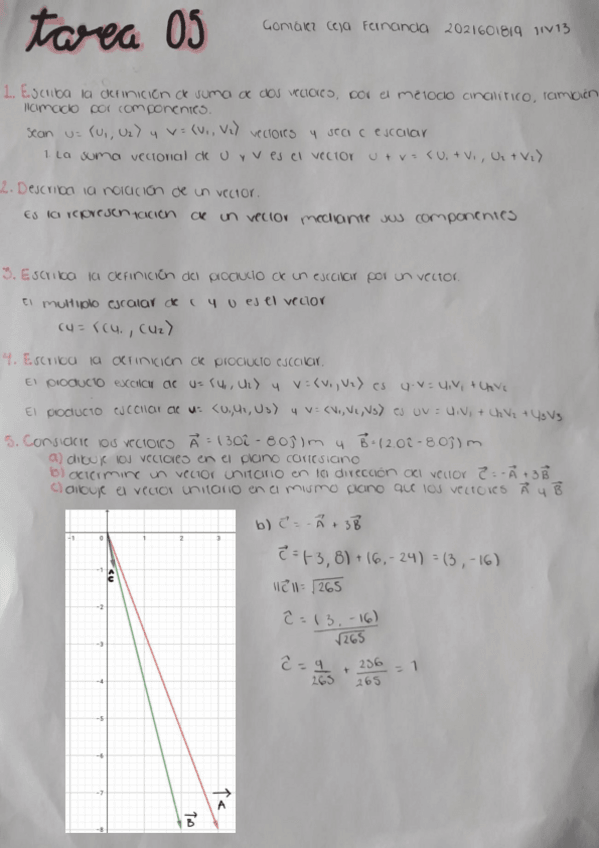 tarea 05
González Ceja Fernanda 2021601819 1IV13
1. Escriba la definición de suma de dos vectores, por el método analítico, también
llamado por componentes.
Sean u=⟨u₁, u₂⟩ y v=⟨v₁, v₂⟩ vectores y sea c escalar
1. La suma vectorial de u y v es el vector u + v = ⟨u₁ + v₁, u₂ + v₂⟩
2. Describa la notación de un vector.
Es la representación de un vector mediante sus componentes
3. Escriba la definición del producto de un escalar por un vector.
El multiplo escalar de c y u es el vector
cu = ⟨cu₁, cu₂⟩
4. Escriba la definición de producto escalar.
El producto escalar de u=⟨u₁, u₂⟩ y v=⟨v₁, v₂⟩ es u·v= u₁v₁ + u₂v₂
El producto escalar de u= ⟨u₁, u₂, u₃⟩ y v=⟨v₁, v₂, v₃⟩ es uv= u₁v₁ + u₂v₂ + u₃v₃
5. Considere los vectores A⃗ = (30î - 80ĵ)m y B⃗ = (20î - 80ĵ)m
a) dibuje los vectores en el plano cartesiano
b) determine un vector unitario en la dirección del vector C⃗ = -A⃗ + 3B⃗
c) dibuje el vector unitario en el mismo plano que los vectores A⃗ y B⃗
b) C⃗ = -A⃗ + 3B⃗
C⃗ = (-3, 8) + (6, -24) = (3, -16)
||C⃗|| = √265
C⃗ = (3, -16)
√265
C⃗ = 9/265 + 256/265 = 1
-1 0 1 2 3
-1
C
-2
-3
-4
-5
-6
-7
A⃗
B⃗
-8